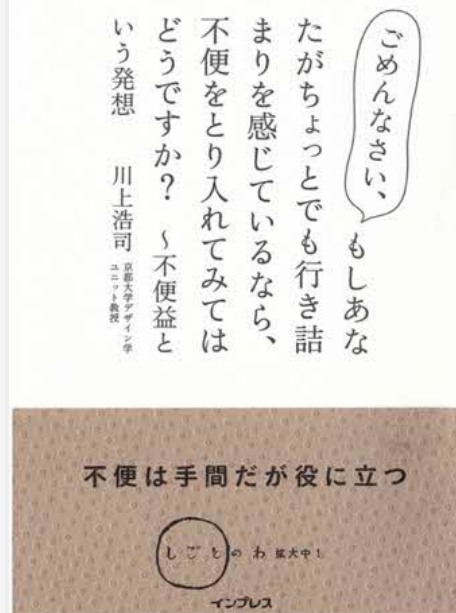 ごめんなさい、もしあな
たがちょっとでも行き詰
まりを感じているなら、
不便をとり入れてみては
どうですか? ～不便益と
いう発想 川上浩司 京都大学デザイン学
ユニット教授
不便は手間だが役に立つ
しごとのわ 拡大中!
インプレス